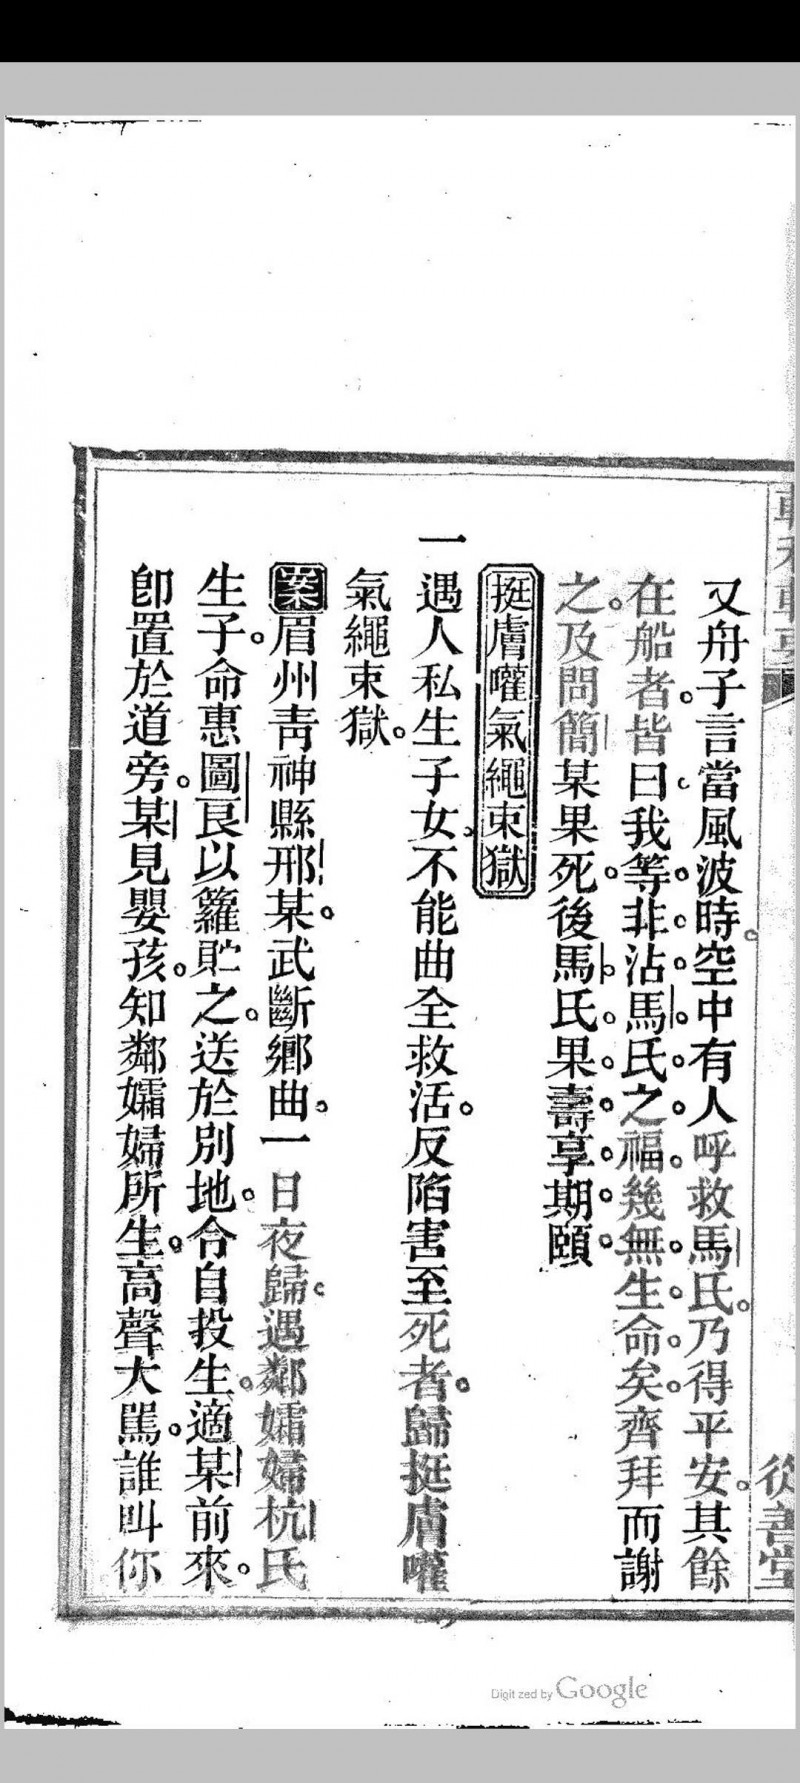 又舟子言當風波時空中有人呼救馬氏。乃得平安。其餘
在船者。皆曰我等非沾馬氏之福。幾無生命矣。齊拜而謝
之。及問簡某果死。後馬氏果壽享期頤
挺膚嚾氣繩束獄
一遇人私生子女。不能曲全救活。反陷害至死者。歸挺膚嚾
氣繩束獄。
案眉州靑神縣邢某。武斷鄉曲。一日夜歸。遇鄰孀婦杭氏
生子。命惠圖艮以籮貯之。送於別地。令自投生。適某前來。
卽置於道旁。某見嬰孩。知鄰孀婦所生。高聲大罵。誰叫你
從善堂
Digitized by Google